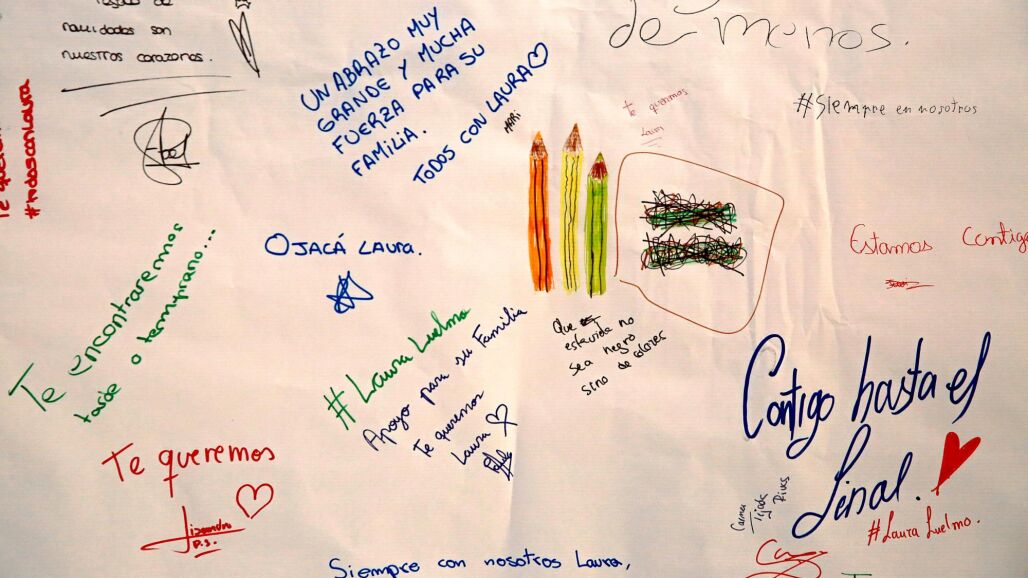 nuestros corazones.
son
#todosconlaura
UN ABRAZO MUY
GRANDE Y MUCHA
FUERZA PARA SU
FAMILIA.
TODOS CON LAURA
MARI
de menos.
Te queremos
Laura
#Siempre en nosotros
Estamos Contigo
OJACÁ LAURA.
Te encontraremos
tarde o temprano...
#Laura Luelmo
Apoyo para su Familia
Te queremos
Laura
Que
esta vida no
sea negro
sino de colores
Te queremos
Contigo hasta el
final.
Carmen
Tijada
Rivas
#Laura Luelmo.
Siempre con nosotros Laura,